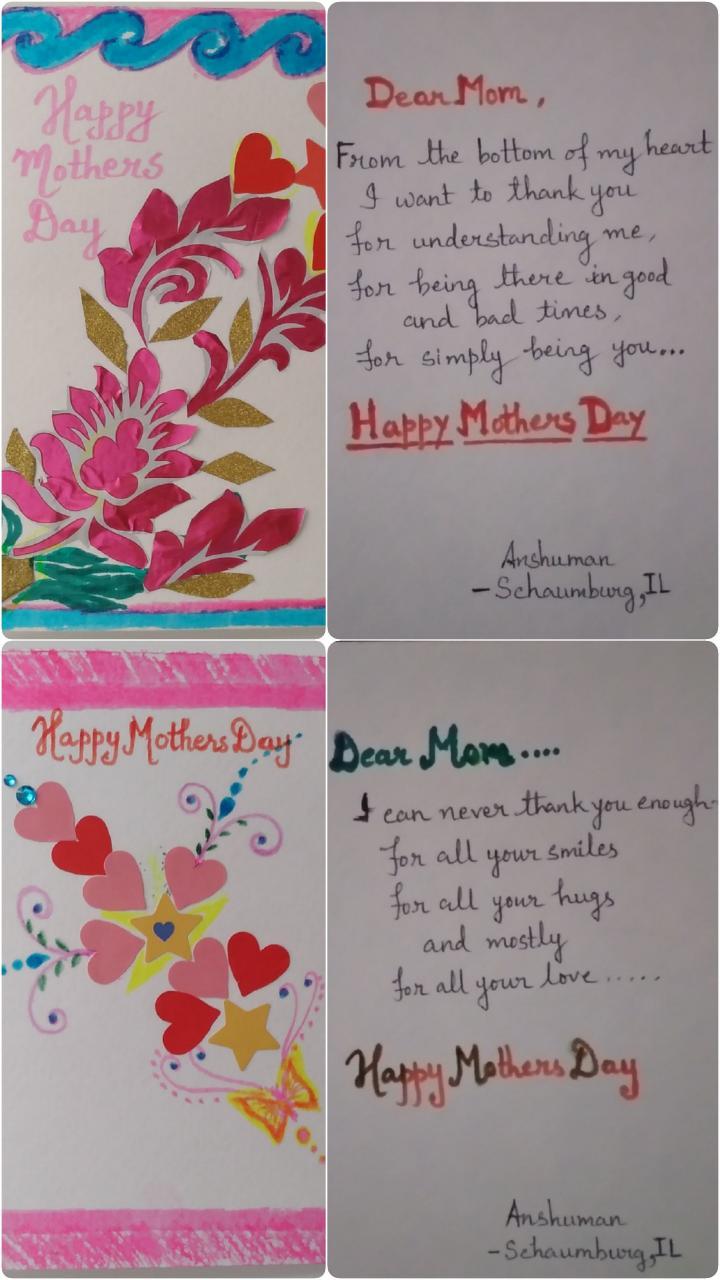 Happy
Mothers
Day
Dear Mom,
From the bottom of my heart
I want to thank you
for understanding me,
for being there in good
and bad times,
for simply being you...
Happy Mothers Day
Anshuman
- Schaumburg, IL
Happy Mothers Day
Dear Mom....
I can never thank you enough-
for all your smiles
for all your hugs
and mostly
for all your love .....
Happy Mothers Day
Anshuman
- Schaumburg, IL